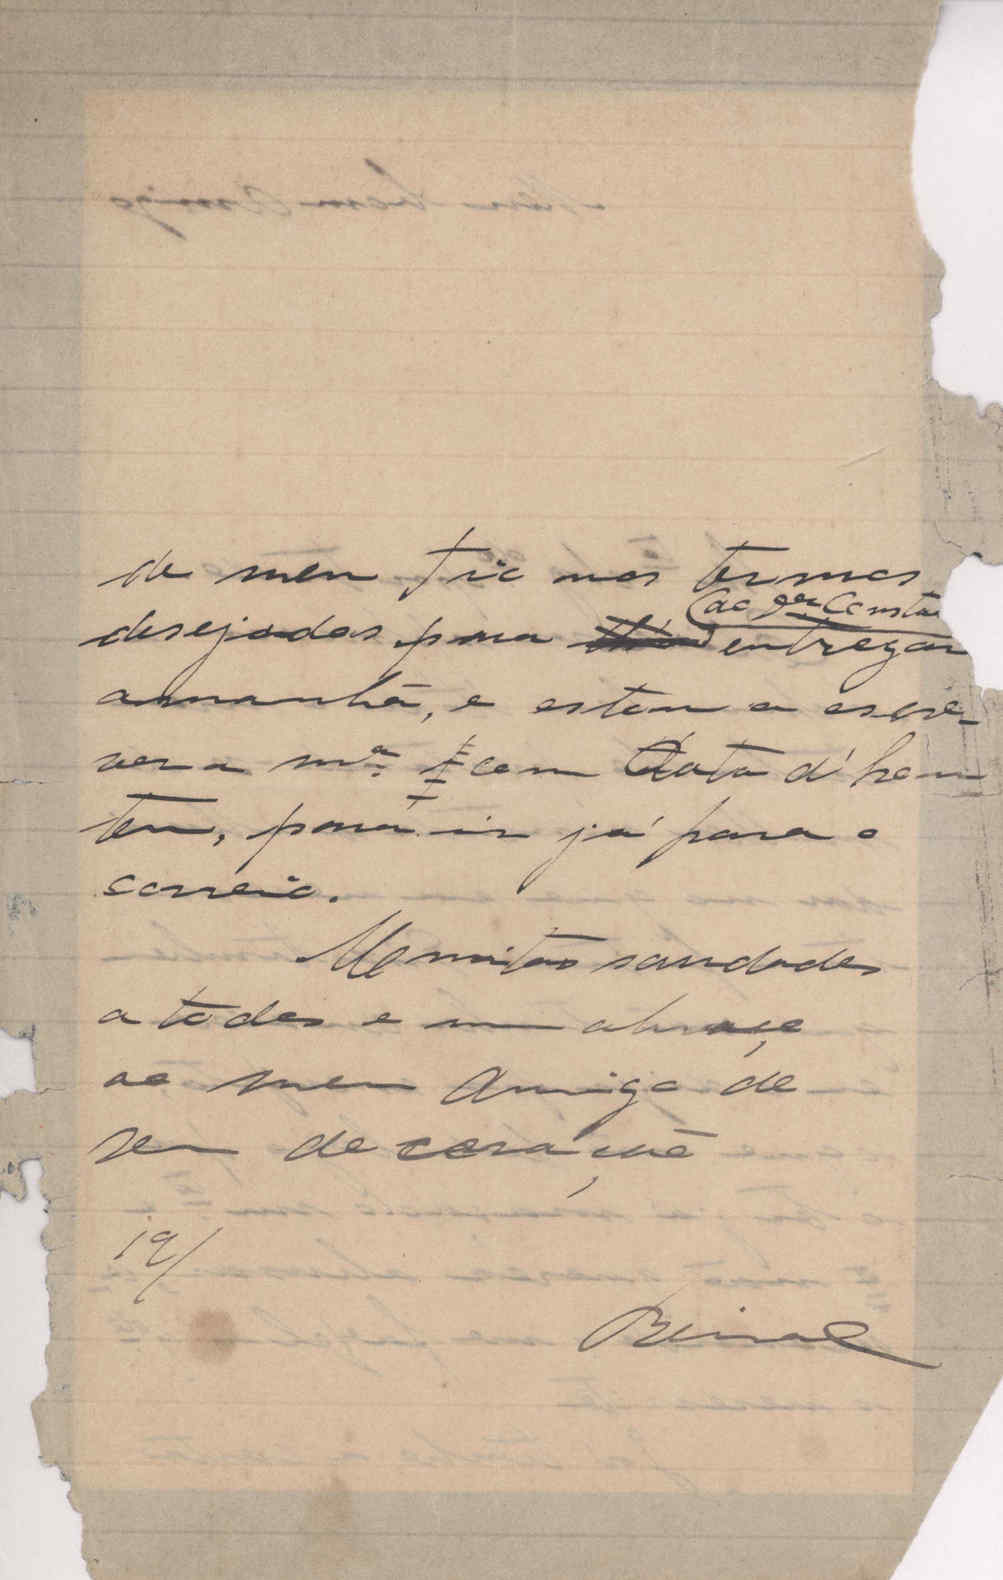 de meu tio nos termos
(ao Snr. Consta
desejados para entregar
amanhã, e estou a escre-
ver a mª com data d'hon
tem, para ir já para o
correio.
Muitas saudades
a todos e um abraço
ao meu Amigo de
seu de coração
19/